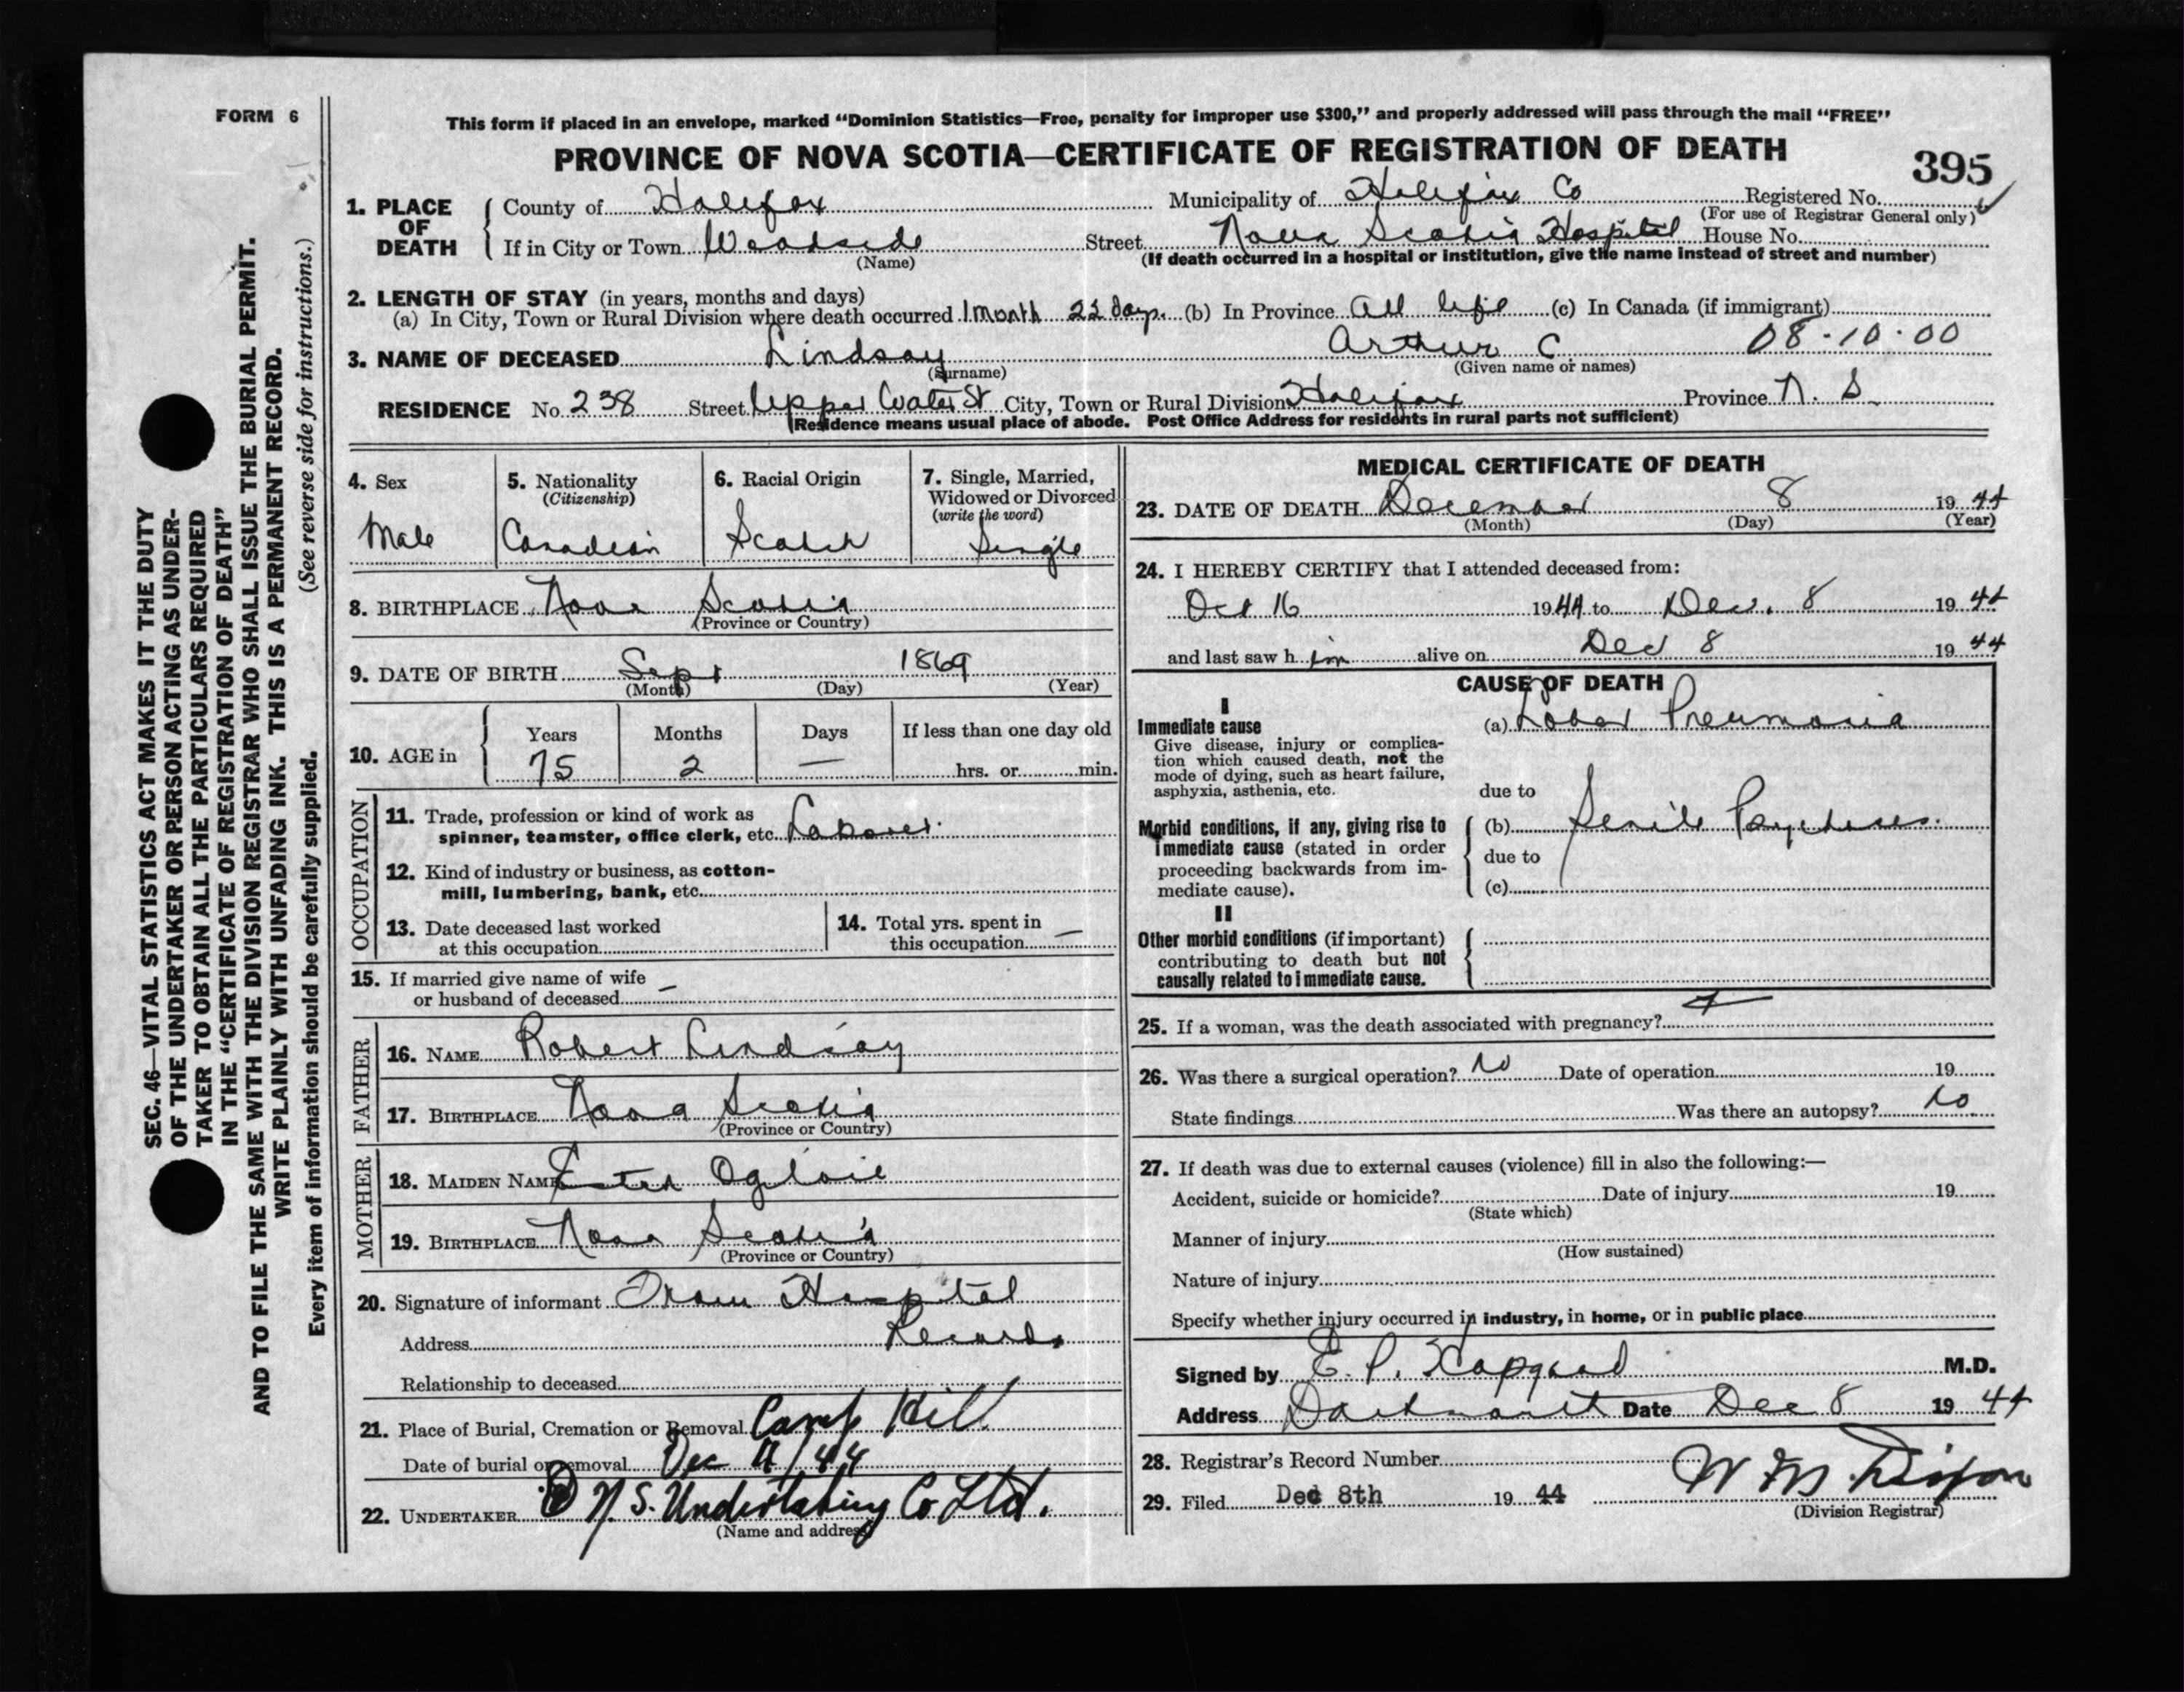 FORM 6
This form if placed in an envelope, marked “Dominion Statistics—Free, penalty for improper use $300,” and properly addressed will pass through the mail “FREE”
PROVINCE OF NOVA SCOTIA—CERTIFICATE OF REGISTRATION OF DEATH
395
1. PLACE OF DEATH
County of Halifax Municipality of Halifax Co Registered No.
(For use of Registrar General only)
If in City or Town Woodside Street Nova Scotia Hospital House No.
(Name) (If death occurred in a hospital or institution, give the name instead of street and number)
2. LENGTH OF STAY (in years, months and days)
(a) In City, Town or Rural Division where death occurred 1 month 22 days. (b) In Province All life (c) In Canada (if immigrant)
3. NAME OF DECEASED Lindsay Arthur C. 08-10-00
(Surname) (Given name or names)
RESIDENCE No. 238 Street Upper Water St City, Town or Rural Division Halifax Province N. S.
(Residence means usual place of abode. Post Office Address for residents in rural parts not sufficient)
4. Sex Male
5. Nationality (Citizenship) Canadian
6. Racial Origin Scotch
7. Single, Married, Widowed or Divorced (write the word) Single
8. BIRTHPLACE Nova Scotia
(Province or Country)
9. DATE OF BIRTH Sept 1869
(Month) (Day) (Year)
10. AGE in Years 75 Months 2 Days — If less than one day old hrs. or min.
OCCUPATION
11. Trade, profession or kind of work as
spinner, teamster, office clerk, etc. Laborer
12. Kind of industry or business, as cotton-
mill, lumbering, bank, etc.
13. Date deceased last worked
at this occupation
14. Total yrs. spent in
this occupation —
15. If married give name of wife
or husband of deceased —
FATHER
16. NAME Robert Lindsay
17. BIRTHPLACE Nova Scotia
(Province or Country)
MOTHER
18. MAIDEN NAME Ogilvie
19. BIRTHPLACE Nova Scotia
(Province or Country)
20. Signature of informant From Hospital
Address Records
Relationship to deceased
21. Place of Burial, Cremation or Removal Camp Hill
Date of burial or removal Dec 11/44
22. UNDERTAKER N. S. Undertaking Co Ltd.
(Name and address)
MEDICAL CERTIFICATE OF DEATH
23. DATE OF DEATH December 8 1944
(Month) (Day) (Year)
24. I HEREBY CERTIFY that I attended deceased from:
Oct 16 1944 to Dec. 8 1944
and last saw him alive on Dec 8 1944
CAUSE OF DEATH
I
Immediate cause (a) Lobar Pneumonia
Give disease, injury or complica-
tion which caused death, not the
mode of dying, such as heart failure,
asphyxia, asthenia, etc. due to
Morbid conditions, if any, giving rise to
immediate cause (stated in order
proceeding backwards from im-
mediate cause).
(b) Senile Psychosis.
due to
(c)
II
Other morbid conditions (if important)
contributing to death but not
causally related to immediate cause.
25. If a woman, was the death associated with pregnancy?
26. Was there a surgical operation? No Date of operation 19
State findings Was there an autopsy? No
27. If death was due to external causes (violence) fill in also the following:—
Accident, suicide or homicide? Date of injury 19
(State which)
Manner of injury
(How sustained)
Nature of injury
Specify whether injury occurred in industry, in home, or in public place
Signed by E. P. Hapgood M.D.
Address Dartmouth Date Dec 8 1944
28. Registrar’s Record Number
29. Filed Dec 8th 1944 W M Dixon
(Division Registrar)
SEC. 46—VITAL STATISTICS ACT MAKES IT THE DUTY
OF THE UNDERTAKER OR PERSON ACTING AS UNDER-
TAKER TO OBTAIN ALL THE PARTICULARS REQUIRED
IN THE “CERTIFICATE OF REGISTRATION OF DEATH”
AND TO FILE THE SAME WITH THE DIVISION REGISTRAR WHO SHALL ISSUE THE BURIAL PERMIT.
WRITE PLAINLY WITH UNFADING INK. THIS IS A PERMANENT RECORD.
Every item of information should be carefully supplied. (See reverse side for instructions.)